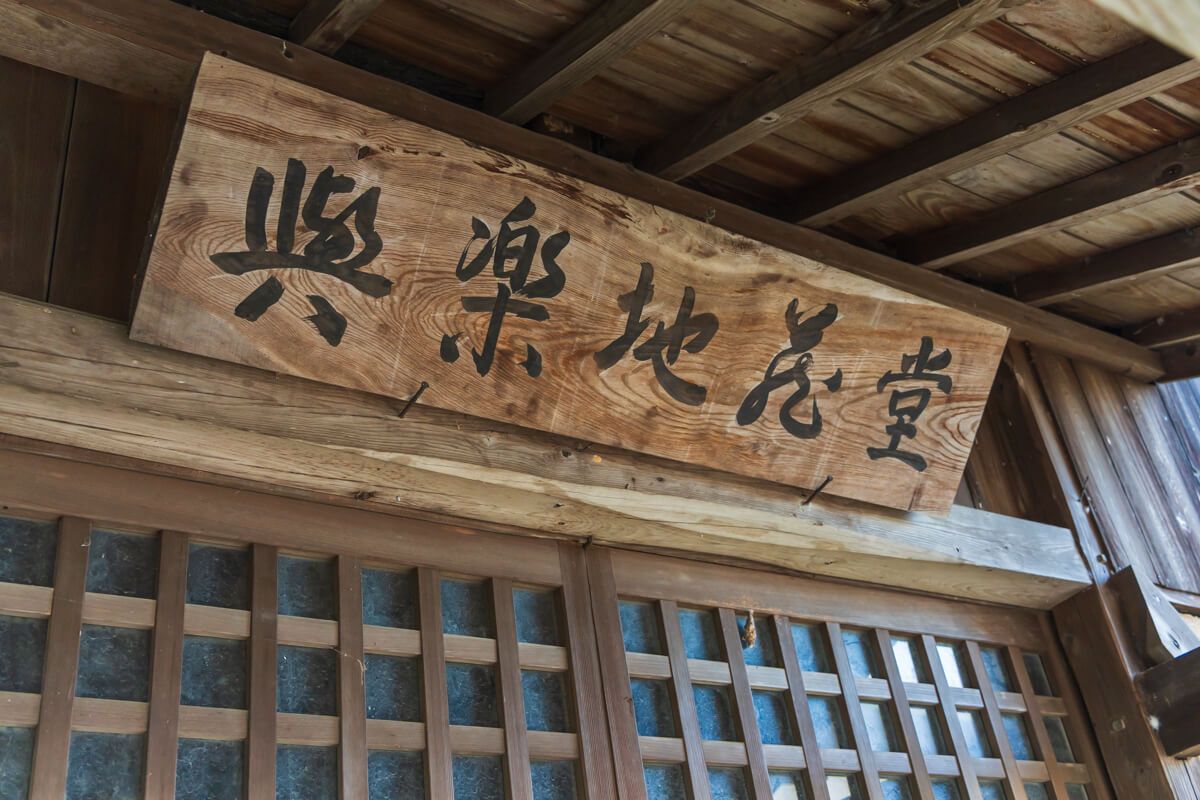 與楽地蔵堂